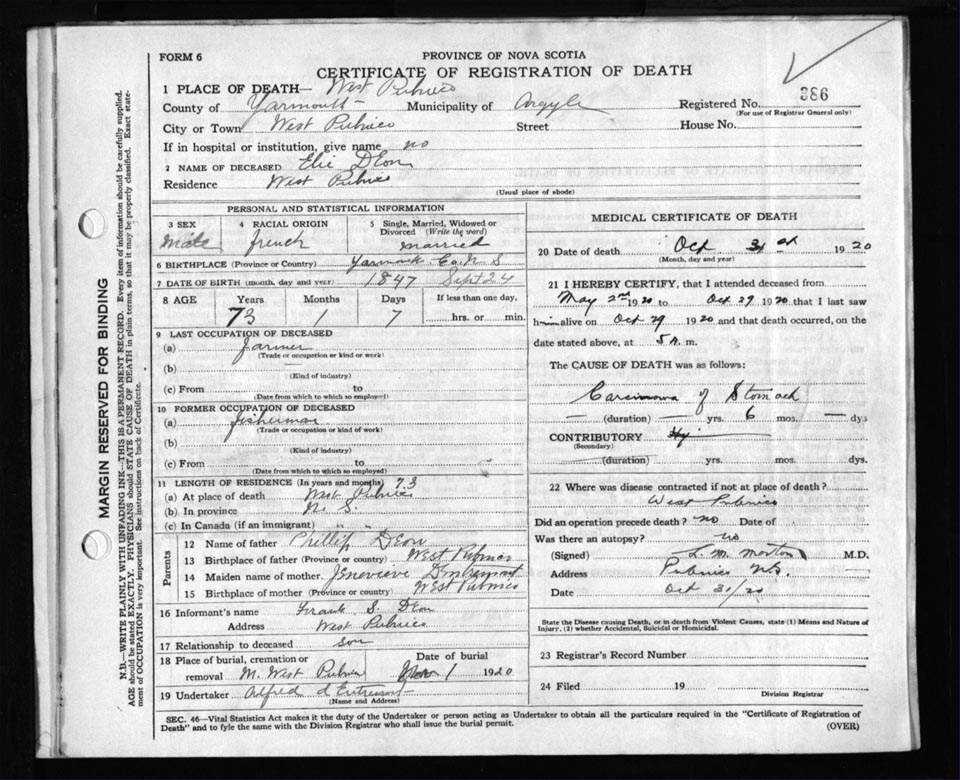 FORM 6
PROVINCE OF NOVA SCOTIA
CERTIFICATE OF REGISTRATION OF DEATH
386
1 PLACE OF DEATH— West Pubnico
County of Yarmouth Municipality of Argyle Registered No.
(For use of Registrar General only)
City or Town West Pubnico Street House No.
If in hospital or institution, give name no
2 NAME OF DECEASED Elie DEon
Residence West Pubnico
(Usual place of abode)
PERSONAL AND STATISTICAL INFORMATION
3 SEX 4 RACIAL ORIGIN 5 Single, Married, Widowed or Divorced (Write the word)
Male french married
6 BIRTHPLACE (Province or Country) Yarmouth Co. N S
7 DATE OF BIRTH (month, day and year) 1847 Sept 24
8 AGE Years Months Days If less than one day,
73 1 7 hrs. or min.
9 LAST OCCUPATION OF DECEASED
(a) farmer
(Trade or occupation or kind or work)
(b)
(Kind of industry)
(c) From to
(Date from which to which so employed)
10 FORMER OCCUPATION OF DECEASED
(a) fisherman
(Trade or occupation or kind of work)
(b)
(Kind of industry)
(c) From to
(Date from which to which so employed)
11 LENGTH OF RESIDENCE (In years and months) 73
(a) At place of death West Pubnico
(b) In province N. S.
(c) In Canada (if an immigrant) " "
Parents
12 Name of father Phillip DEon
13 Birthplace of father (Province or country) West Pubnico
14 Maiden name of mother Genevieve
15 Birthplace of mother (Province or country) West Pubnico
16 Informant's name Frank S. DEon
Address West Pubnico
17 Relationship to deceased son
18 Place of burial, cremation or removal M. West Pubnico
Date of burial Nov 1 1920
19 Undertaker Alfred d Entremont
(Name and Address)
MEDICAL CERTIFICATE OF DEATH
20 Date of death Oct 31 st 1920
(Month, day and year)
21 I HEREBY CERTIFY, that I attended deceased from
May 2nd 1920 to Oct 29 1920 that I last saw
him alive on Oct 29 1920 and that death occurred, on the
date stated above, at 5 A. m.
The CAUSE OF DEATH was as follows:
Carcinoma of Stomach
(duration) — yrs. 6 mos. — dys
CONTRIBUTORY
(Secondary)
(duration) yrs. mos. dys.
22 Where was disease contracted if not at place of death?
West Pubnico
Did an operation precede death? no Date of
Was there an autopsy? no
(Signed) L. M. Morton M.D.
Address Pubnico N.S.
Date Oct 31/20
State the Disease causing Death, or in death from Violent Causes, state (1) Means and Nature of
Injury, (2) whether Accidental, Suicidal or Homicidal.
23 Registrar's Record Number
24 Filed 19
Division Registrar
SEC. 46—Vital Statistics Act makes it the duty of the Undertaker or person acting as Undertaker to obtain all the particulars required in the "Certificate of Registration of
Death" and to fyle the same with the Division Registrar who shall issue the burial permit.
(OVER)
MARGIN RESERVED FOR BINDING
N.B.—WRITE PLAINLY WITH UNFADING INK—THIS IS A PERMANENT RECORD. Every item of information should be carefully supplied.
AGE should be stated EXACTLY. PHYSICIANS should STATE CAUSE OF DEATH in plain terms, so that it may be properly classified. Exact state-
ment of OCCUPATION is very important. See instructions on back of Certificate.